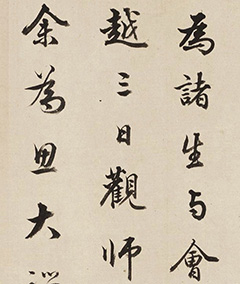 為諸生与會
越三日觀師
余為思大巡